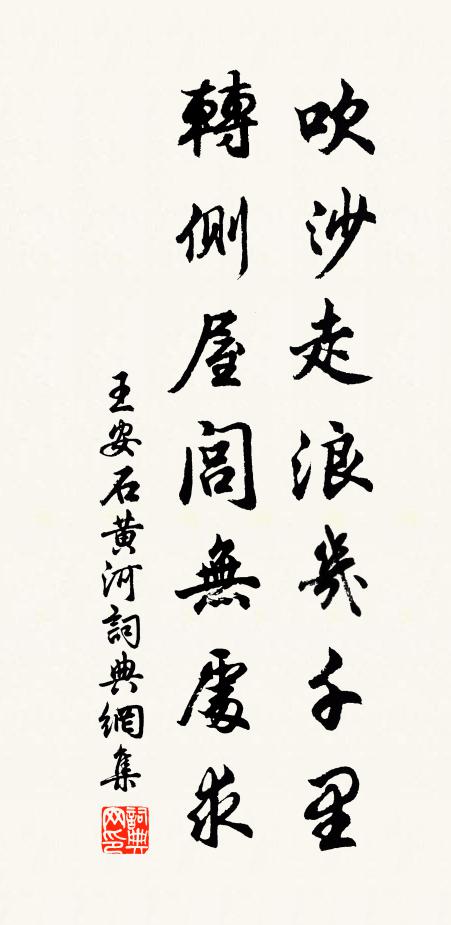 吹沙走浪幾千里
轉側屋閭無處求
王安石黃河詞典網集
詞典
网印